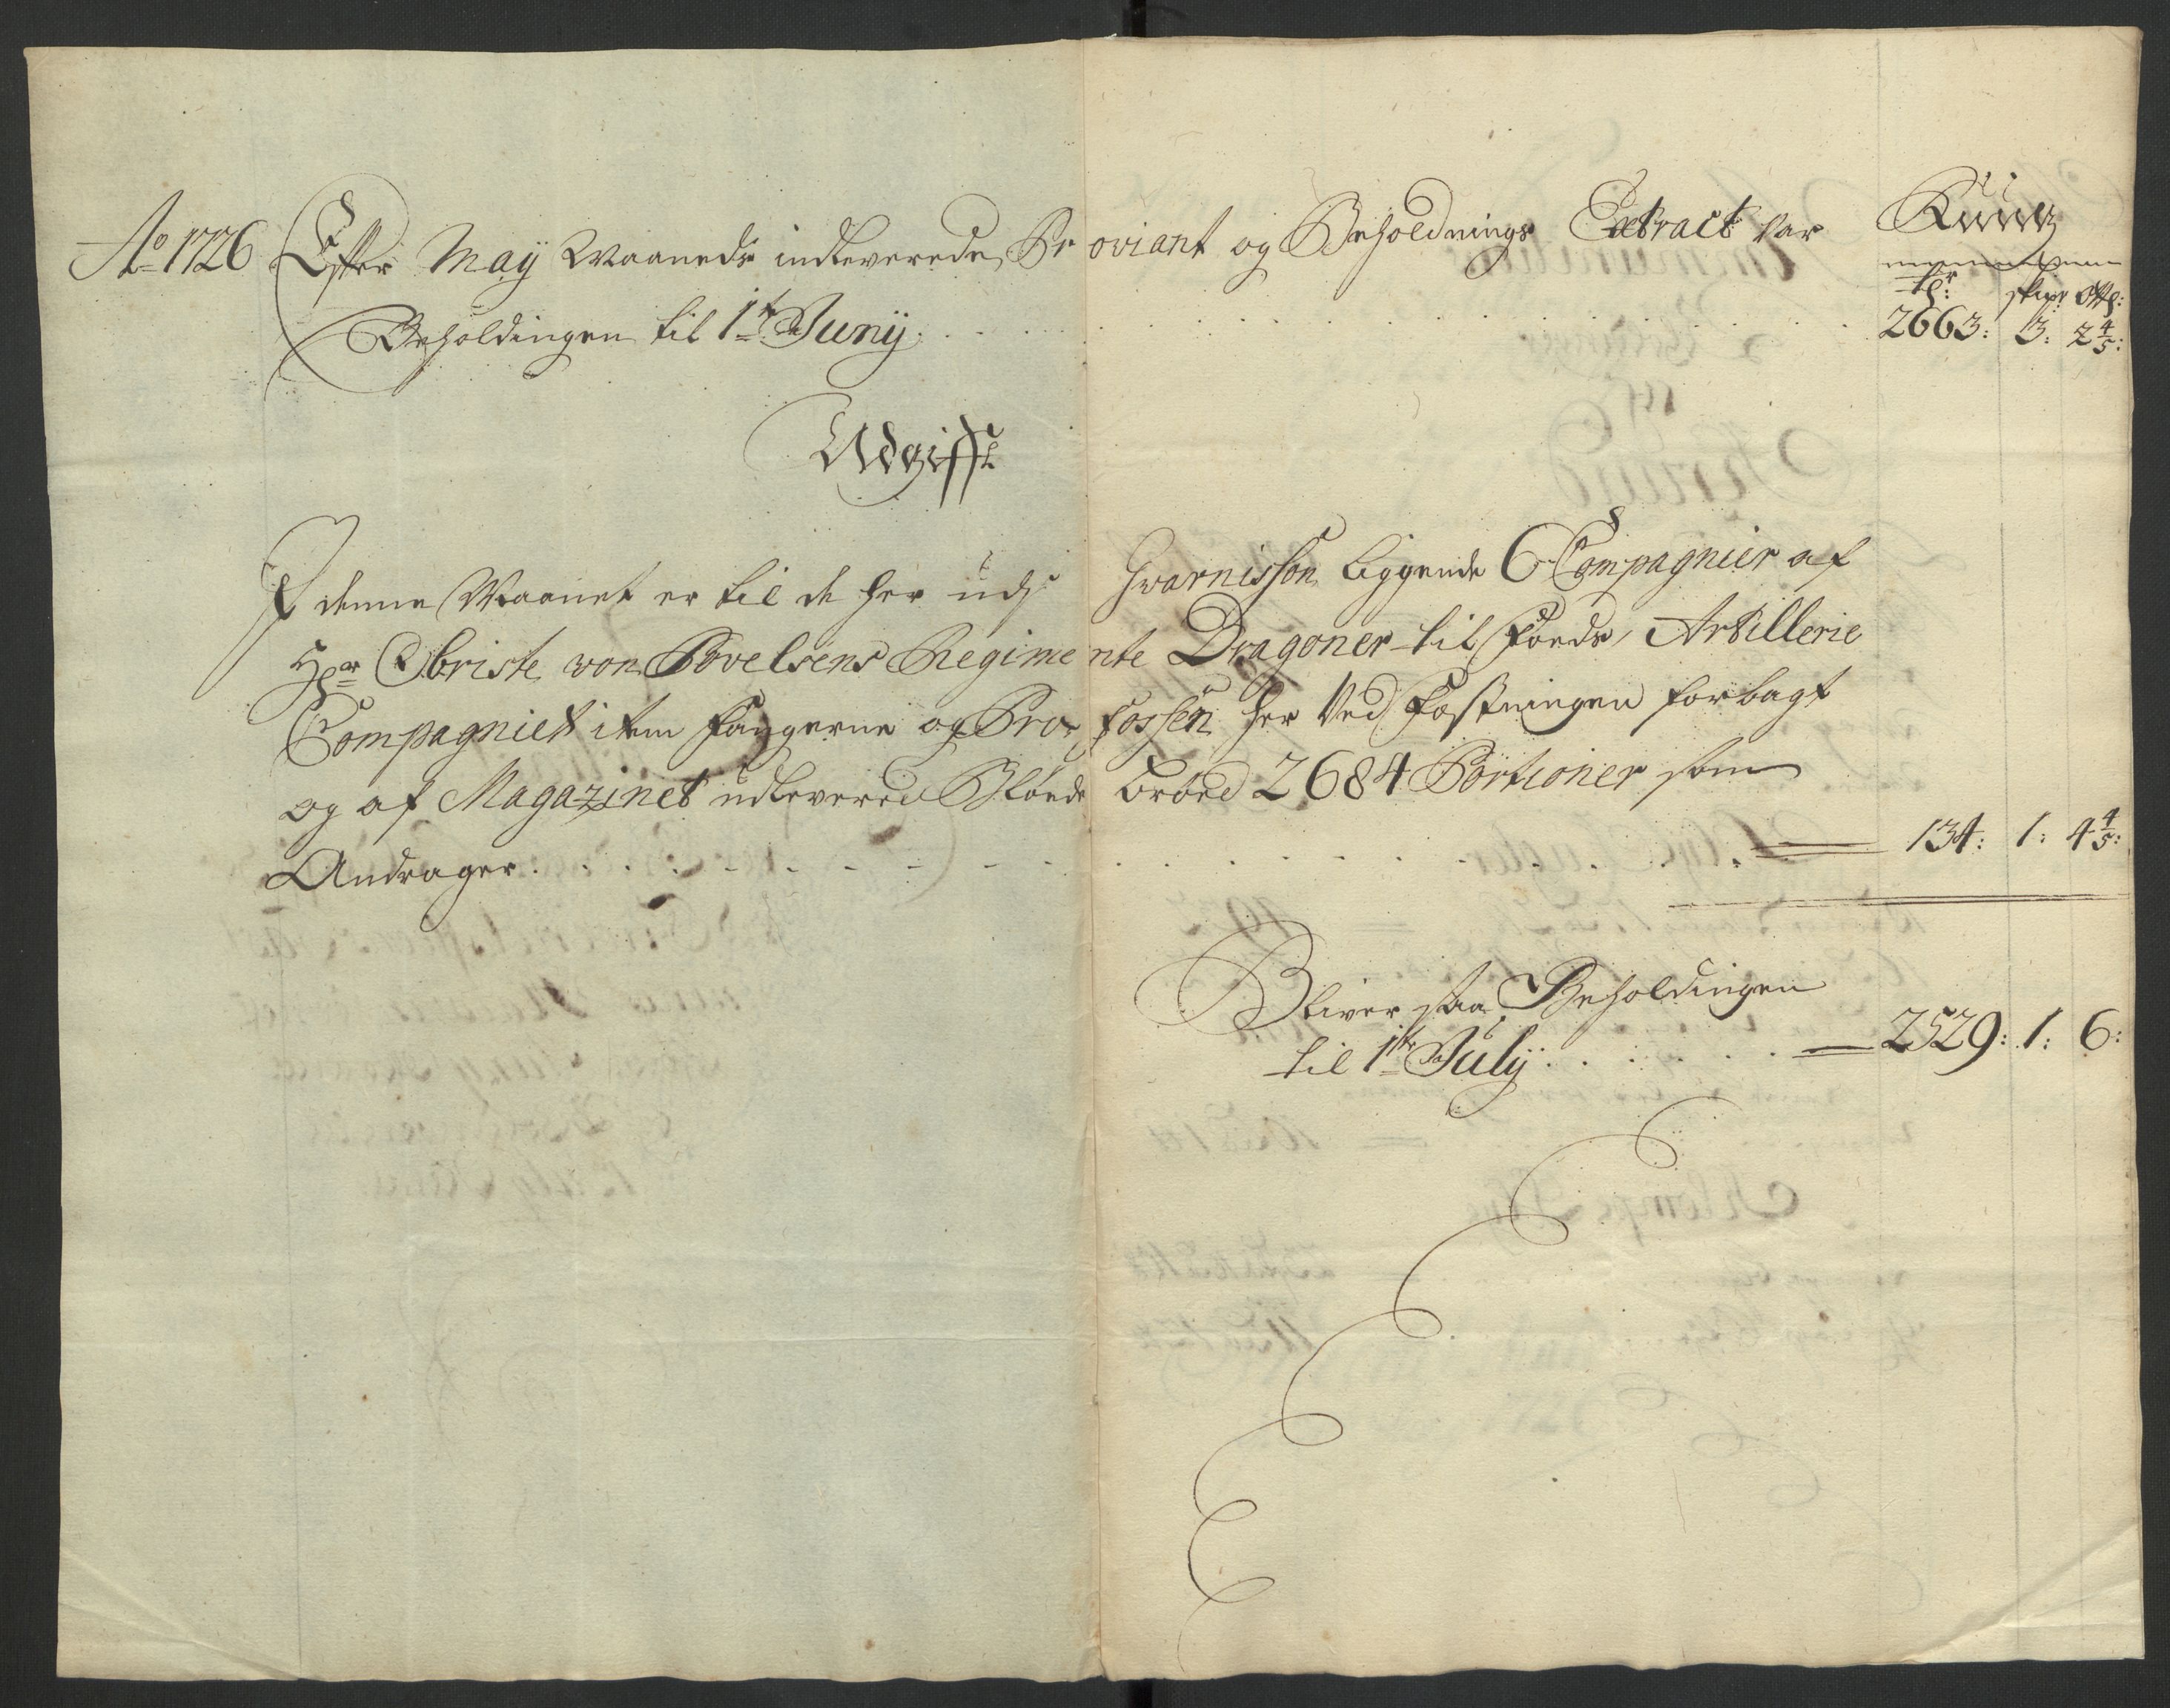 Ao 1726 Efter Maÿ Maaneds indleverede Proviant og Beholdnings Extract var
Beholdingen til 1te Junÿ . . . . 2663: 3: 2 4/5:
Rüüg
Tdr: skpr
Udgifft
I denne Maanet er til de her udj Gvarnisson liggende 6 Compagnier af
Hr Obriste von Povelsens Regimente Dragoner til Foeds, Artillerie
Compagniet item Fangerne og Profossen her Ved Festningen forbagt
og af Magazinet udleveret Bløede brøed 2684 Portioner som
Andrager . . . . 134: 1: 4 4/5:
Bliver saa Beholdingen
til 1te Julÿ . . . . 2529: 1: 6: